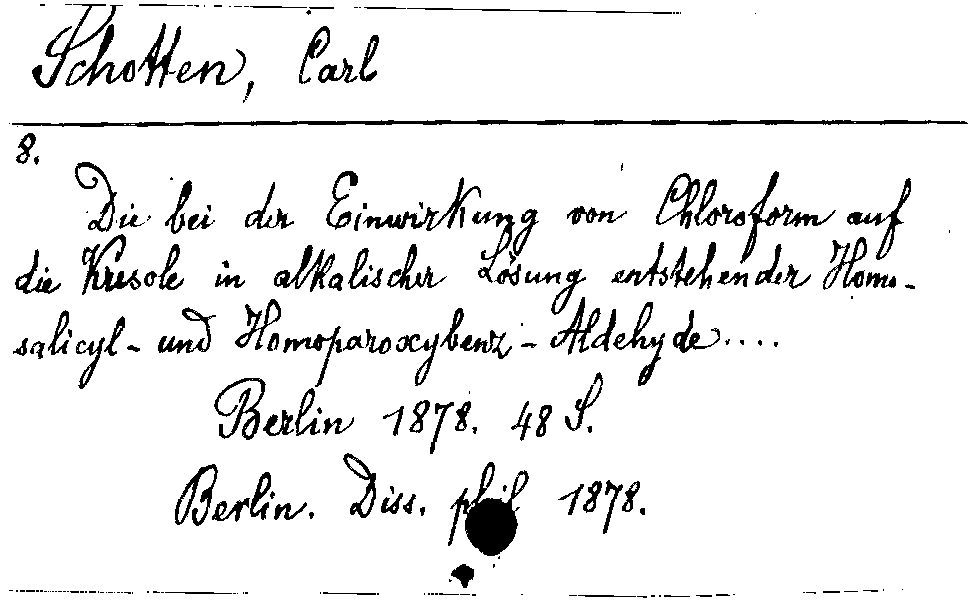 Schotten, Carl
8.
Die bei der Einwirkung von Chloroform auf
die Kresole in alkalischer Lösung entstehender Homo-
salicyl- und Homoparoxybenz-Aldehyde....
Berlin 1878. 48 S.
Berlin. Diss. phil 1878.